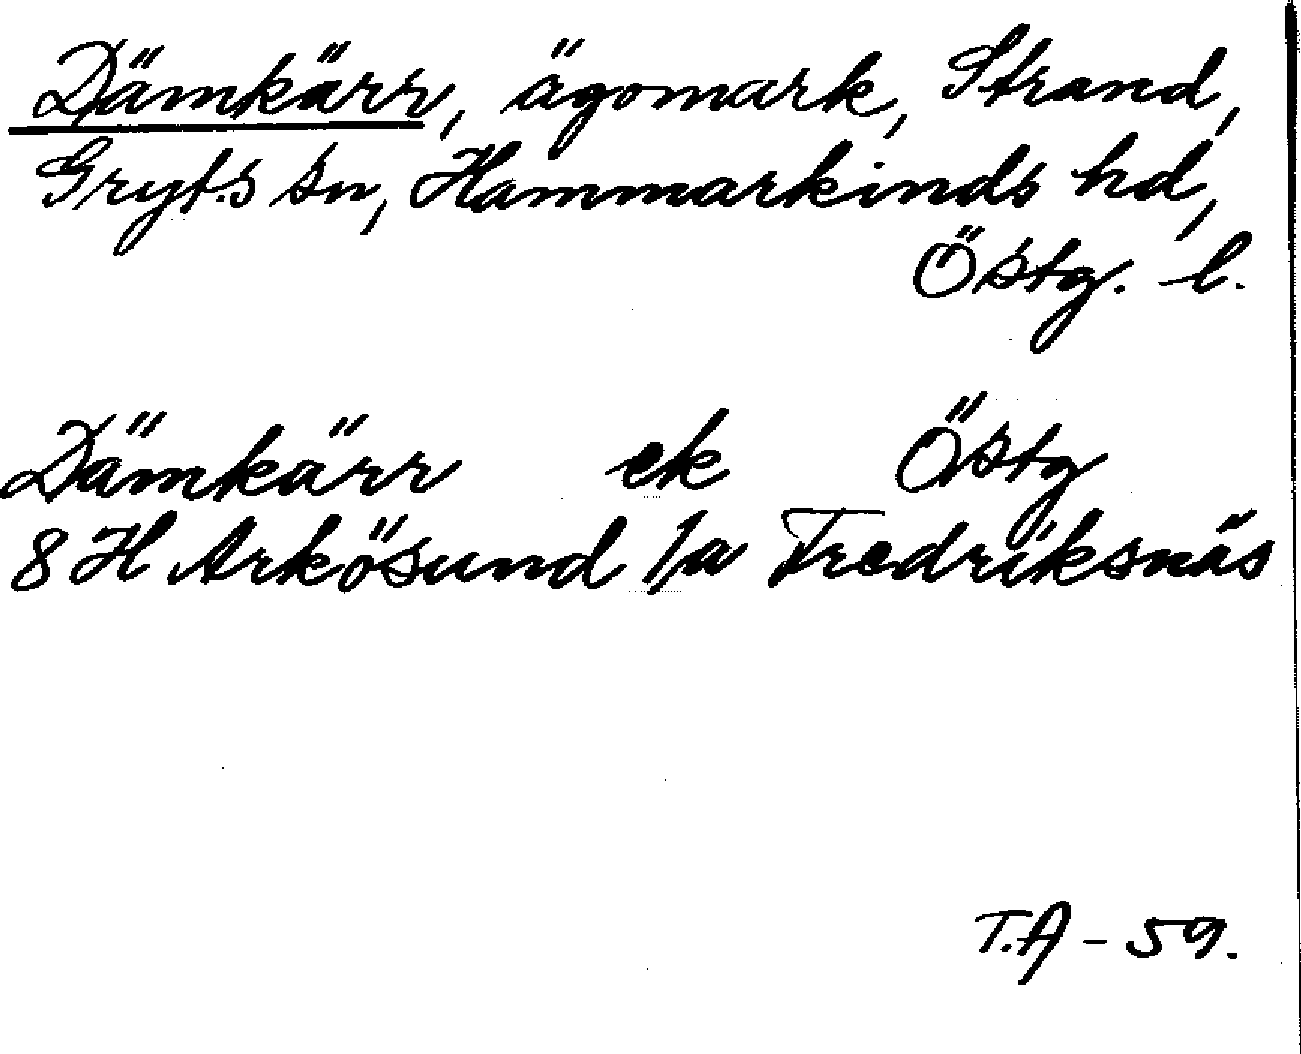 Dämkärr, ägomark, Strand,
Gryts sn, Hammarkinds hd,
Östg. l.
Dämkärr ek Östg
8 H Arkösund l/a Fredriksnäs
T.A - 59.